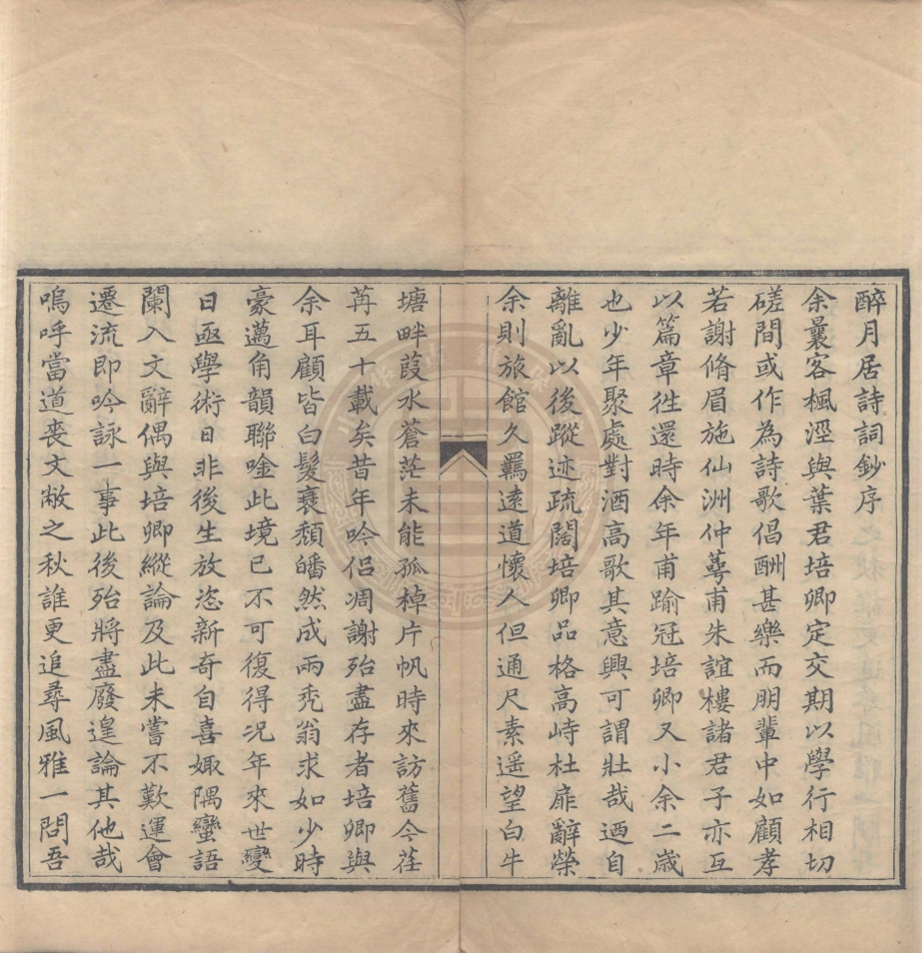 醉月居詩詞鈔序
余曩客楓涇與葉君培卿定交期以學行相切
磋間或作為詩歌倡酬甚樂而朋輩中如顧孝
若謝脩眉施仙洲仲蕚甫朱誼樓諸君子亦互
以篇章徃還時余年甫踰冠培卿又小余二歲
也少年聚處對酒高歌其意興可謂壯哉迺自
離亂以後蹤迹疏闊培卿品格高峙杜扉辭榮
余則旅館久羈遠道懷人但通尺素遥望白牛
塘畔葭水蒼茫未能孤棹片帆時來訪舊今荏
苒五十載矣昔年吟侣凋謝殆盡存者培卿與
余耳顧皆白髮衰頹皤然成兩禿翁求如少時
豪邁角韻聯唫此境已不可復得况年來世變
日亟學術日非後生放恣新奇自喜娵隅蠻語
闌入文辭偶與培卿縱論及此未嘗不歎運會
遷流即吟詠一事此後殆將盡廢遑論其他哉
嗚呼當道喪文敝之秋誰更追尋風雅一問吾